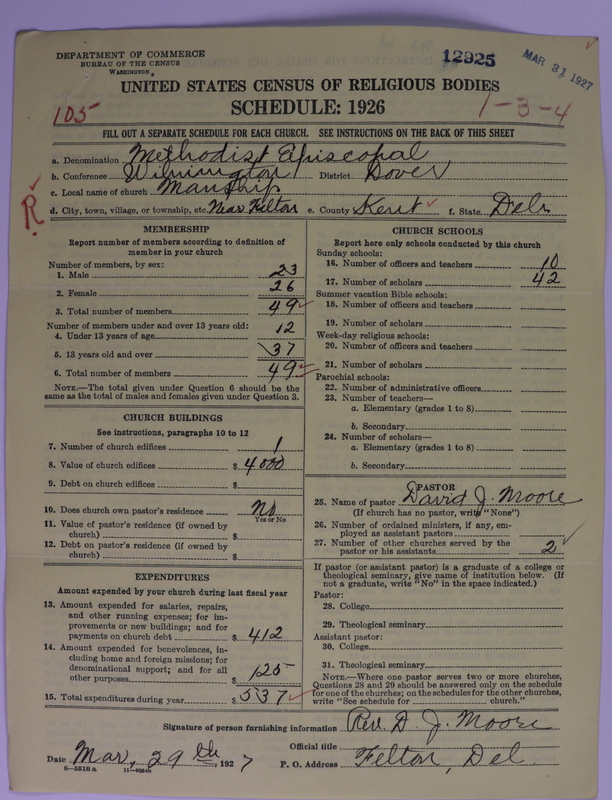 DEPARTMENT OF COMMERCE
BUREAU OF THE CENSUS
WASHINGTON
12925
MAR 31 1927
UNITED STATES CENSUS OF RELIGIOUS BODIES
SCHEDULE: 1926
105
1-3-4
FILL OUT A SEPARATE SCHEDULE FOR EACH CHURCH. SEE INSTRUCTIONS ON THE BACK OF THIS SHEET
a. Denomination Methodist Episcopal
b. Conference Wilmington District Dover
c. Local name of church Manship
d. City, town, village, or township, etc. Near Felton e. County Kent f. State Del.
R
MEMBERSHIP
Report number of members according to definition of
member in your church
Number of members, by sex:
1. Male 23
2. Female 26
3. Total number of members 49
Number of members under and over 13 years old:
4. Under 13 years of age 12
5. 13 years old and over 37
6. Total number of members 49
NOTE.—The total given under Question 6 should be the
same as the total of males and females given under Question 3.
CHURCH BUILDINGS
See instructions, paragraphs 10 to 12
7. Number of church edifices 1
8. Value of church edifices $ 4000
9. Debt on church edifices $
10. Does church own pastor's residence No
Yes or No
11. Value of pastor's residence (if owned by
church) $
12. Debt on pastor's residence (if owned by
church) $
EXPENDITURES
Amount expended by your church during last fiscal year
13. Amount expended for salaries, repairs,
and other running expenses; for im-
provements or new buildings; and for
payments on church debt $ 412
14. Amount expended for benevolences, in-
cluding home and foreign missions; for
denominational support; and for all
other purposes $ 125
15. Total expenditures during year $ 537
CHURCH SCHOOLS
Report here only schools conducted by this church
Sunday schools:
16. Number of officers and teachers 10
17. Number of scholars 42
Summer vacation Bible schools:
18. Number of officers and teachers
19. Number of scholars
Week-day religious schools:
20. Number of officers and teachers
21. Number of scholars
Parochial schools:
22. Number of administrative officers
23. Number of teachers—
a. Elementary (grades 1 to 8)
b. Secondary
24. Number of scholars—
a. Elementary (grades 1 to 8)
b. Secondary
PASTOR
25. Name of pastor David J. Moore
(If church has no pastor, write "None")
26. Number of ordained ministers, if any, em-
ployed as assistant pastors
27. Number of other churches served by the
pastor or his assistants 2
If pastor (or assistant pastor) is a graduate of a college or
theological seminary, give name of institution below. (If
not a graduate, write "No" in the space indicated.)
Pastor:
28. College
29. Theological seminary
Assistant pastor:
30. College
31. Theological seminary
NOTE.—Where one pastor serves two or more churches,
Questions 28 and 29 should be answered only on the schedule
for one of the churches; on the schedules for the other churches,
write "See schedule for church."
Signature of person furnishing information Rev. D. J. Moore
Official title
Date Mar, 29th, 1927 P. O. Address Felton, Del.